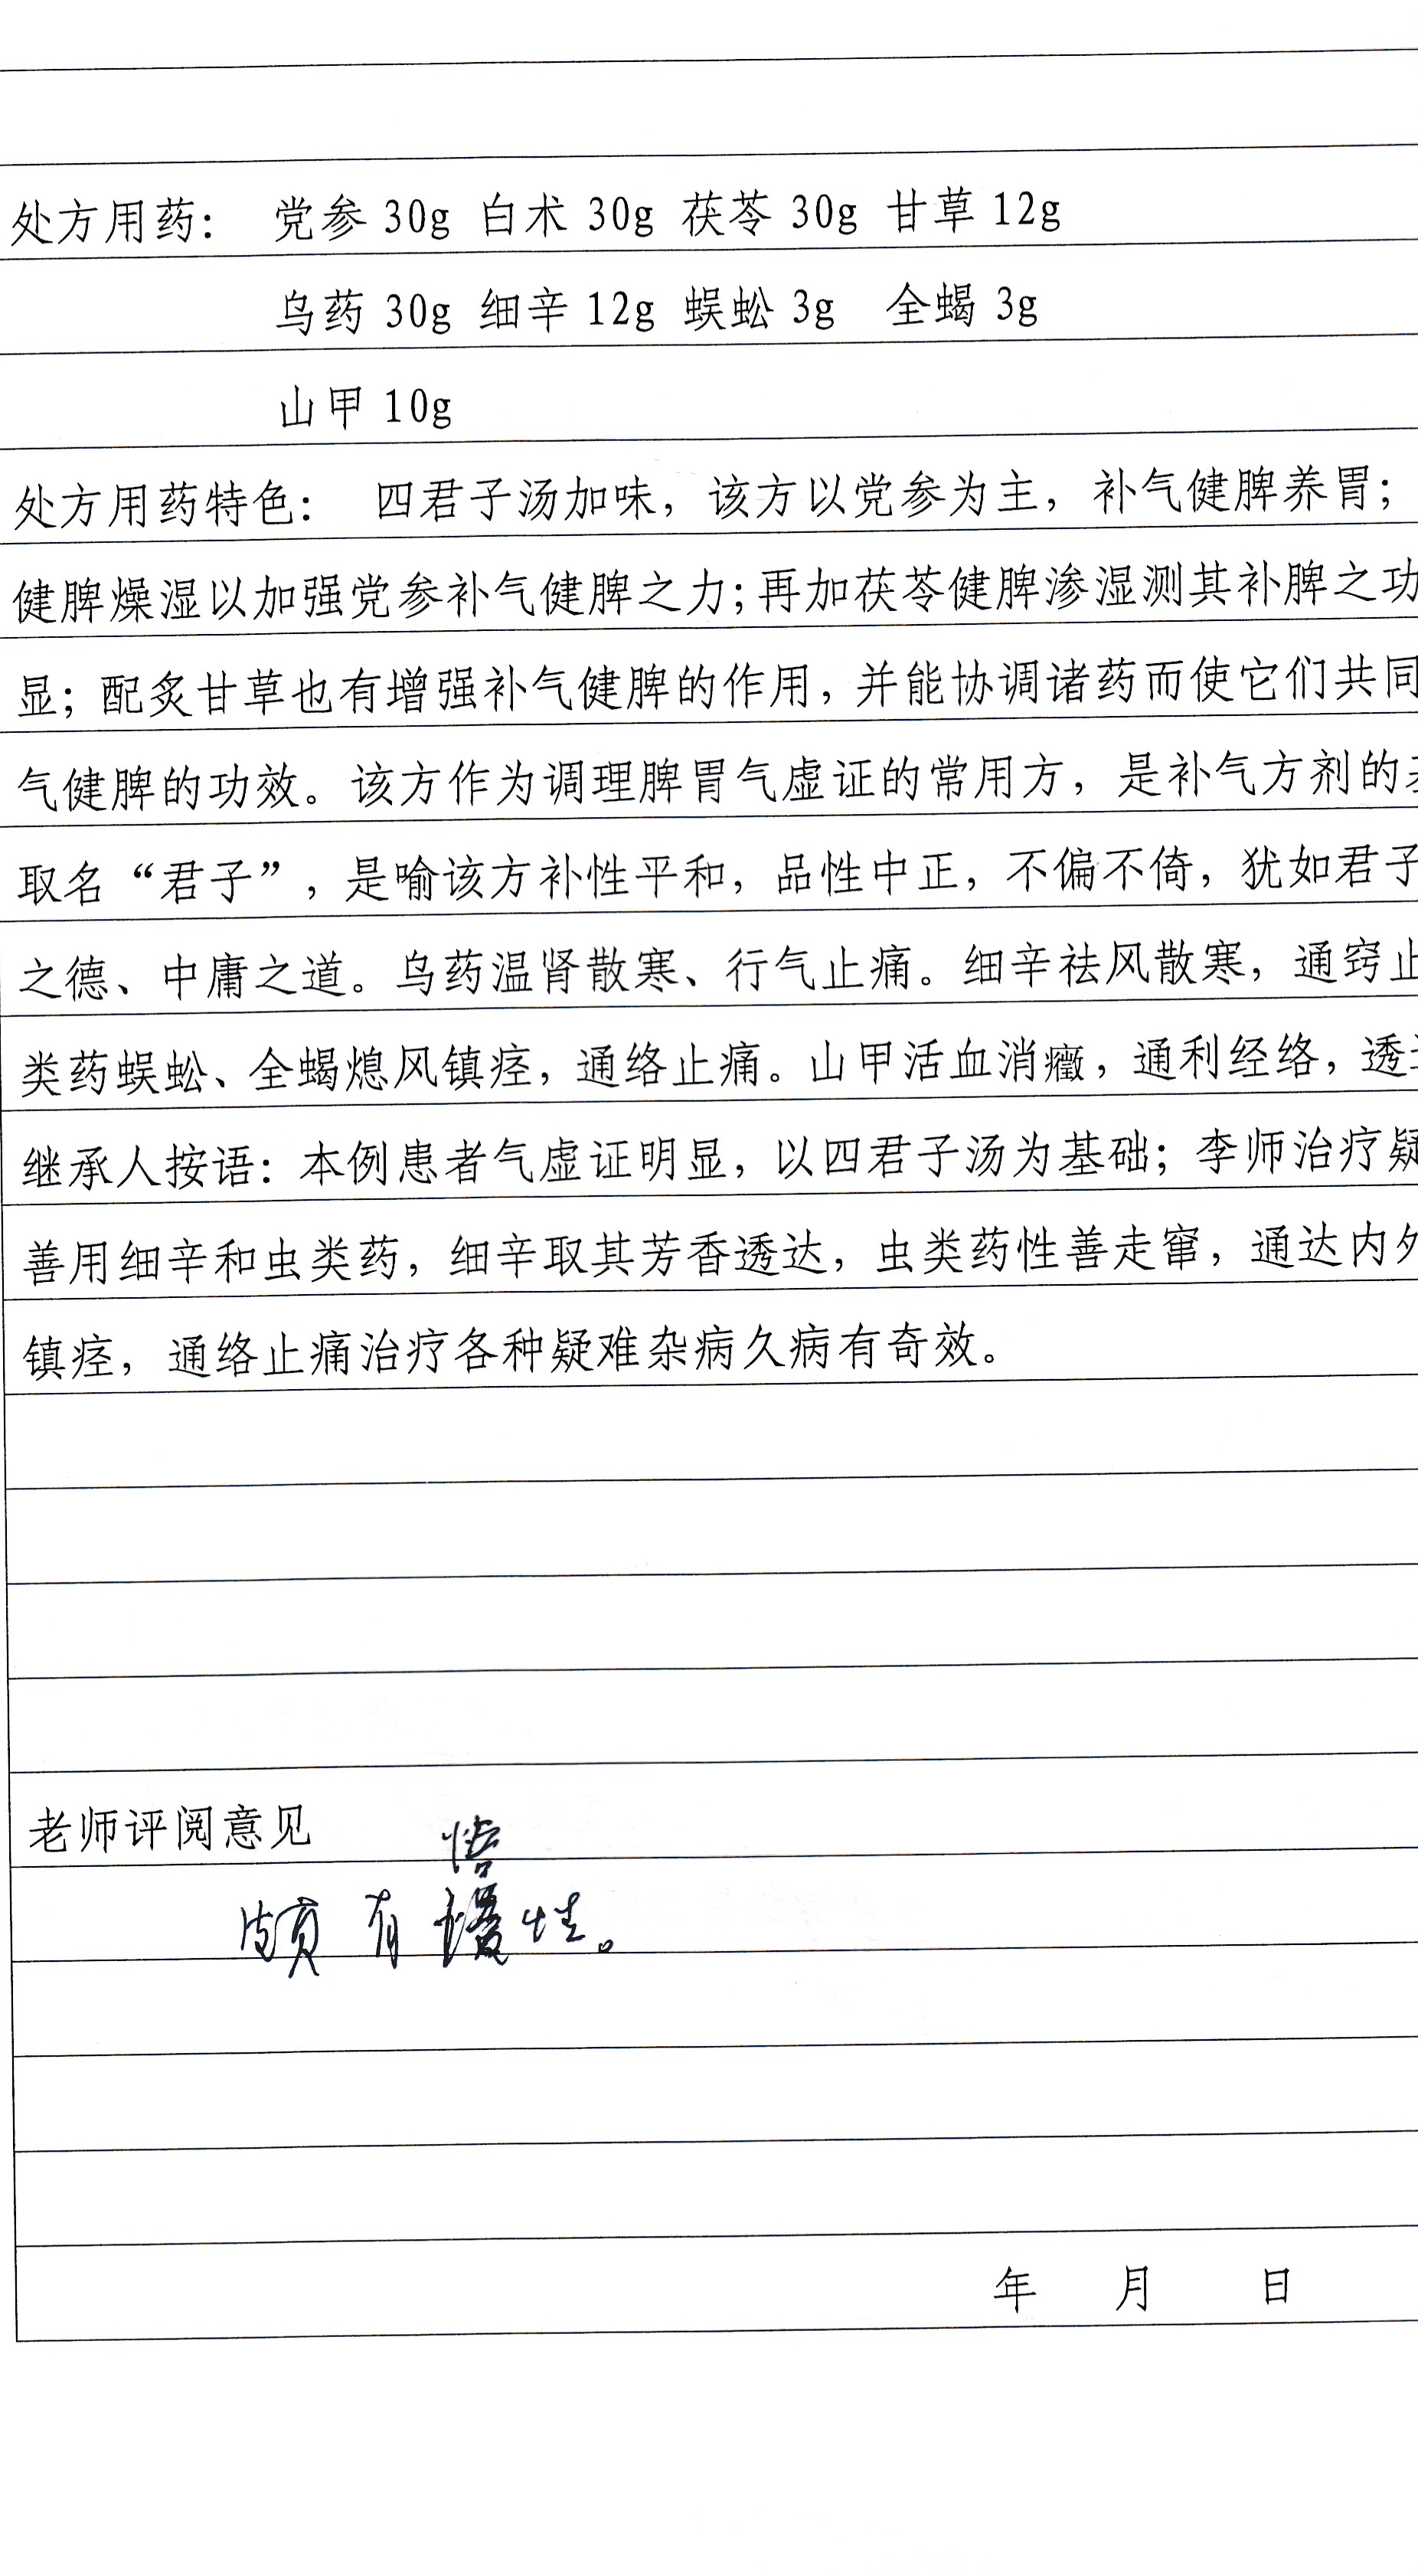 处方用药： 党参 30g 白术 30g 茯苓 30g 甘草 12g
乌药 30g 细辛 12g 蜈蚣 3g 全蝎 3g
山甲 10g
处方用药特色： 四君子汤加味，该方以党参为主，补气健脾养胃；
健脾燥湿以加强党参补气健脾之力；再加茯苓健脾渗湿测其补脾之功
显；配炙甘草也有增强补气健脾的作用，并能协调诸药而使它们共同
气健脾的功效。该方作为调理脾胃气虚证的常用方，是补气方剂的
取名“君子”，是喻该方补性平和，品性中正，不偏不倚，犹如君子
之德、中庸之道。乌药温肾散寒、行气止痛。细辛祛风散寒，通窍止
类药蜈蚣、全蝎熄风镇痉，通络止痛。山甲活血消癥，通利经络，透
继承人按语：本例患者气虚证明显，以四君子汤为基础；李师治疗疑
善用细辛和虫类药，细辛取其芳香透达，虫类药性善走窜，通达内外
镇痉，通络止痛治疗各种疑难杂病久病有奇效。
老师评阅意见
悟
颇有性。
年 月 日